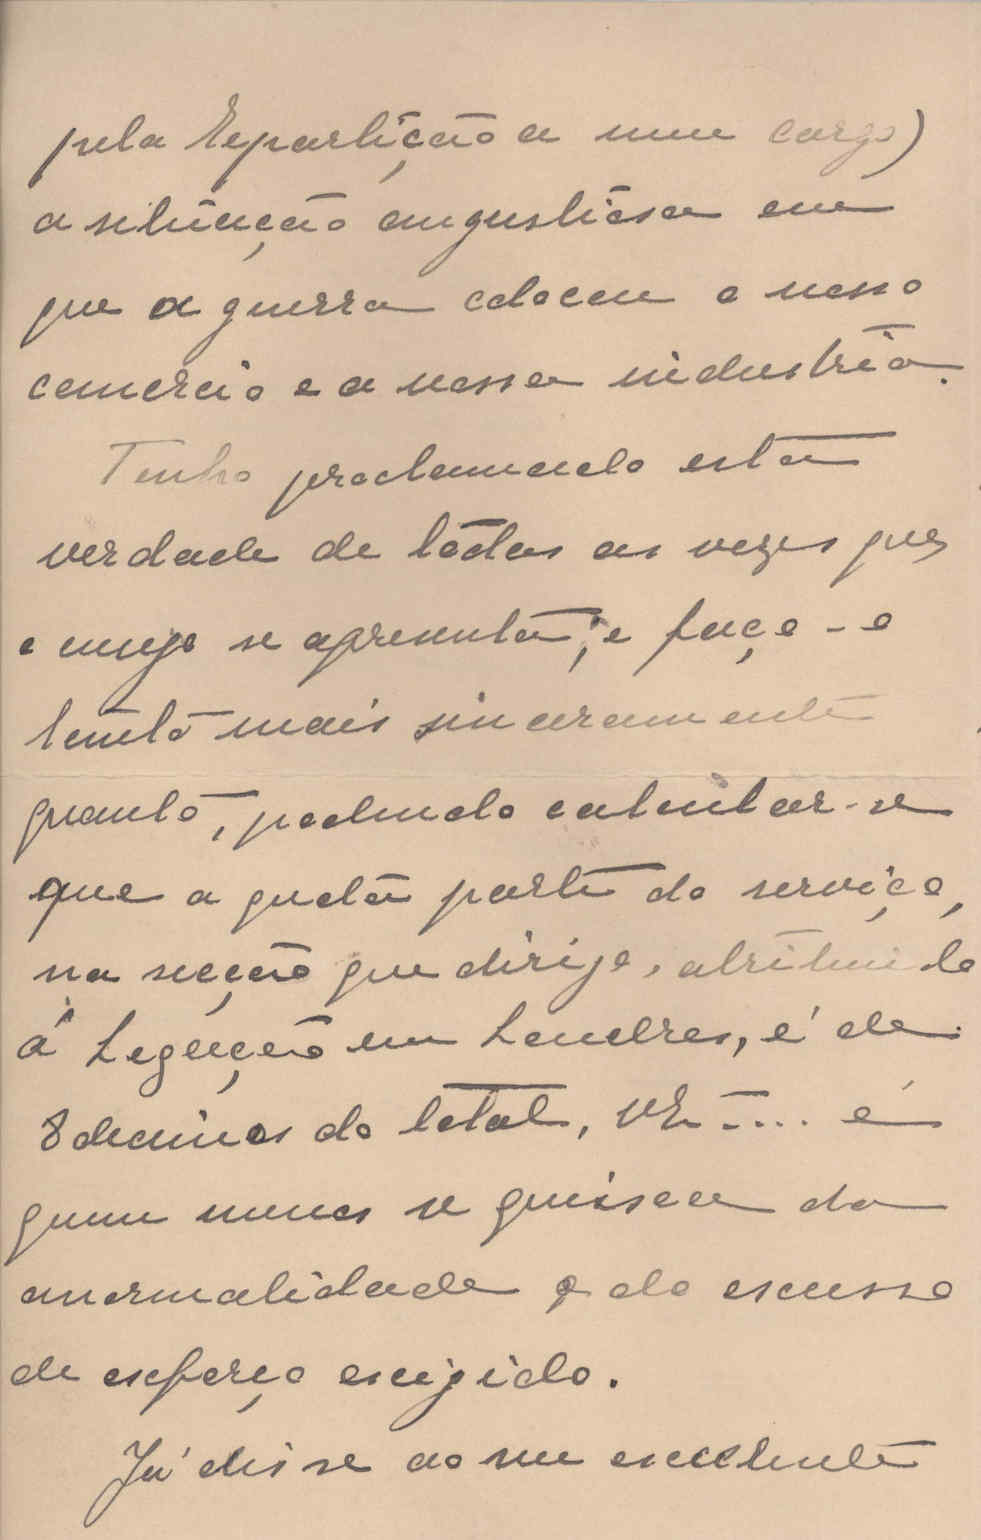 pela Repartição a meu cargo)
a situação angustiosa em
que a guerra colocou o nosso
comercio e a nossa industria.
Tenho proclamado esta
verdade de tôdas as vezes que
o ensejo se apresenta; e faço-o
tanto mais sinceramente
quanto, podendo calcular-se
que a quota parte do serviço,
na secção que dirijo, atribuido
á Legação em Londres, é de
8 decimos do total, V. E. .... é
quem menos se queixa da
anormalidade e do excesso
de esforço exigido.
Já disse ao meu excelente